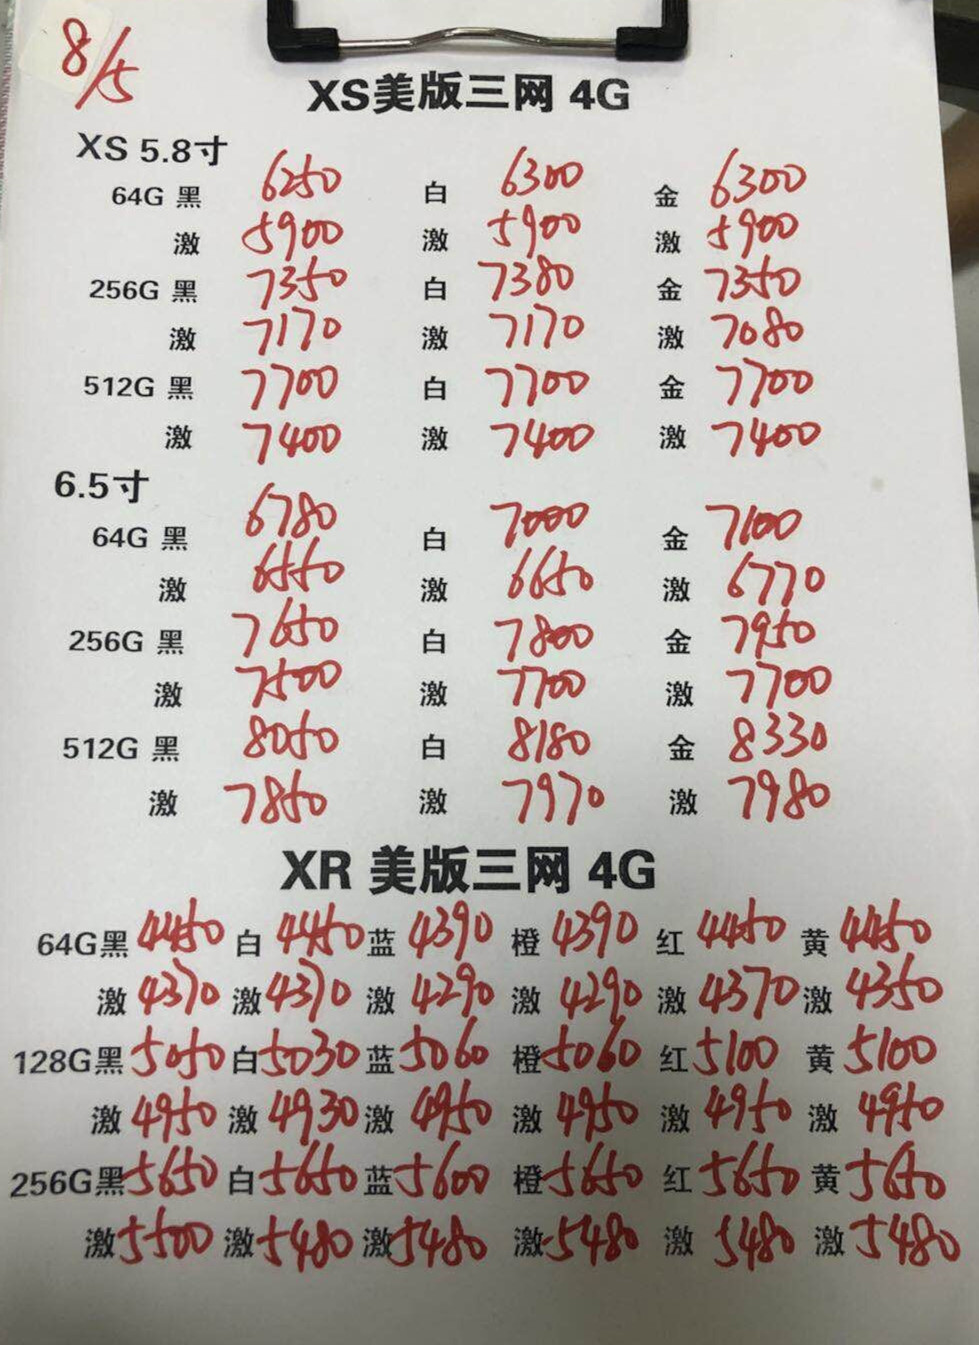 8/5
XS美版三网 4G
XS 5.8寸
64G 黑 6250 白 6300 金 6300
激 5900 激 5900 激 5900
256G 黑 7350 白 7380 金 7350
激 7170 激 7170 激 7080
512G 黑 7700 白 7700 金 7700
激 7400 激 7400 激 7400
6.5寸
64G 黑 6780 白 7000 金 7100
激 6550 激 6650 激 6770
256G 黑 7650 白 7800 金 7950
激 7500 激 7700 激 7700
512G 黑 8050 白 8180 金 8330
激 7850 激 7970 激 7980
XR 美版三网 4G
64G黑 4450 白 4450 蓝 4390 橙 4390 红 4450 黄 4450
激 4370 激 4370 激 4290 激 4290 激 4370 激 4350
128G黑 5050 白 5030 蓝 5060 橙 5060 红 5100 黄 5100
激 4950 激 4930 激 4950 激 4950 激 4950 激 4950
256G黑 5650 白 5650 蓝 5600 橙 5650 红 5650 黄 5650
激 5500 激 5480 激 5480 激 5480 激 5480 激 5480